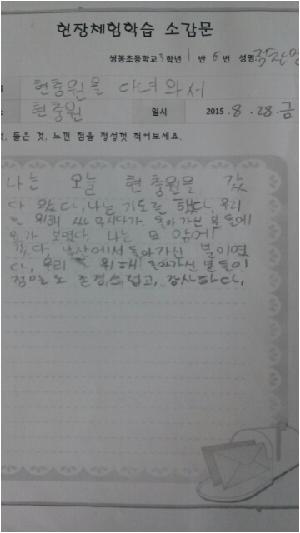 현장체험학습 소감문
초등학교 학년 1 반 6 번 성명
현충원을 다녀와서
현충원 일시 2015. 8. 28. 금
들은 것, 느낀 점을 정성껏 적어보세요.
나는 오늘 현충원을 갔
다 왔다. 나는 기도를 했다. 우리
를 위해 싸우시다가 돌아가신 분들에
보았다. 나는 묘 앞에
갔다. 에서 돌아가신 분이였
다. 우리를 위해 돌아가신 분들이
정말로 존경스럽고, 감사하다.